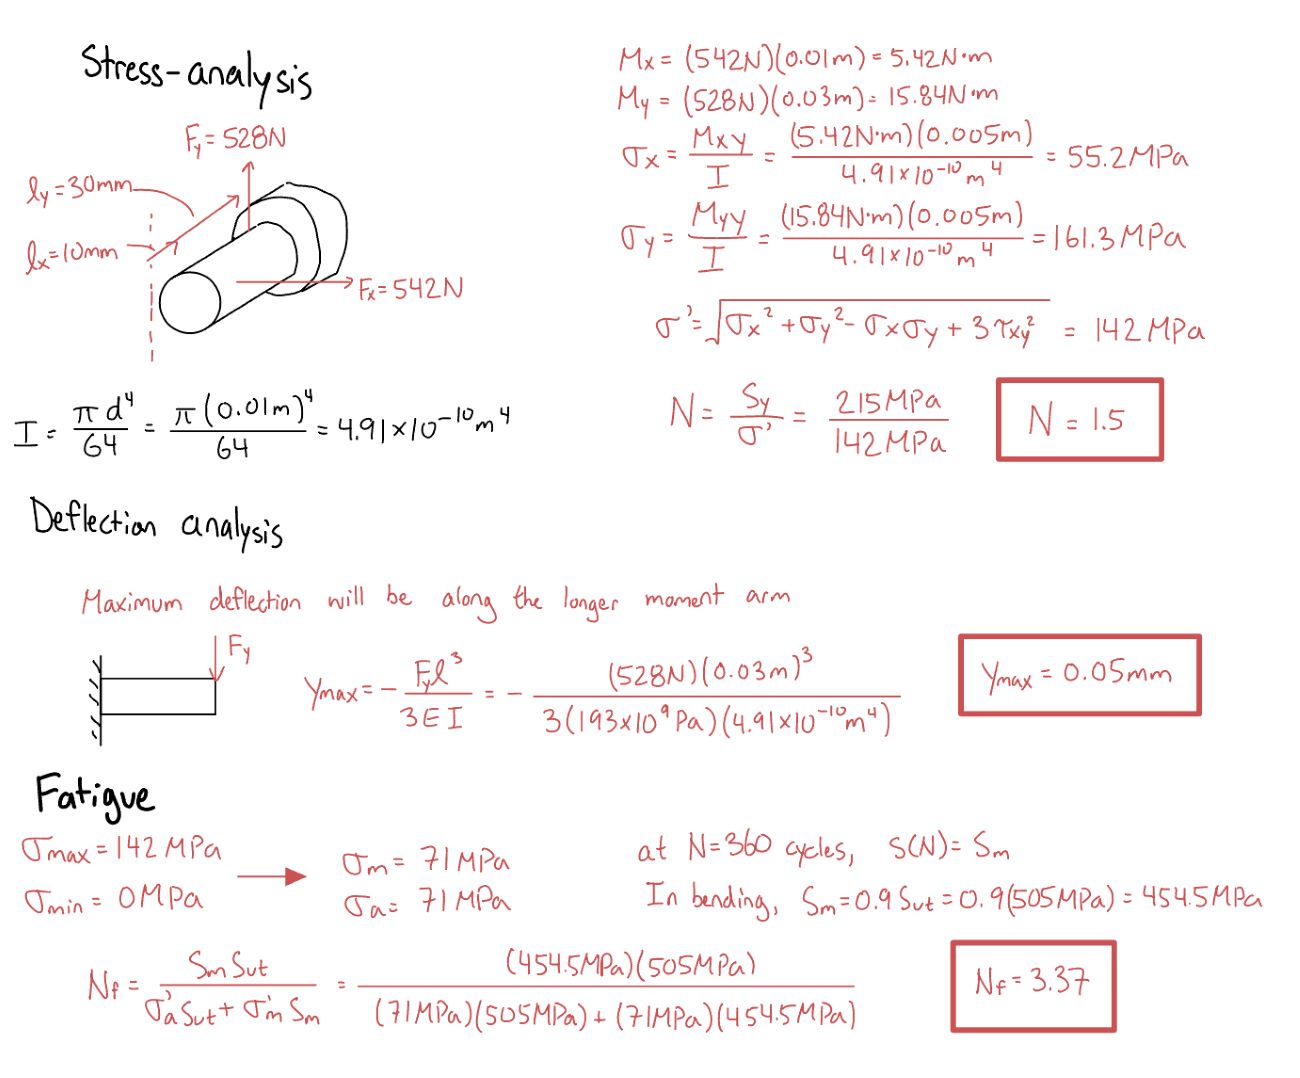 Stress-analysis
F_y = 528N
l_y = 30mm
l_x = 10mm
F_x = 542N
I = πd⁴/64 = π(0.01m)⁴/64 = 4.91×10⁻¹⁰m⁴
M_x = (542N)(0.01m) = 5.42N·m
M_y = (528N)(0.03m) = 15.84N·m
σ_x = M_x y/I = (5.42N·m)(0.005m)/4.91×10⁻¹⁰m⁴ = 55.2MPa
σ_y = M_y y/I = (15.84N·m)(0.005m)/4.91×10⁻¹⁰m⁴ = 161.3MPa
σ' = √(σ_x² + σ_y² - σ_xσ_y + 3τ_xy²) = 142MPa
N = S_y/σ' = 215MPa/142MPa
N = 1.5
Deflection analysis
Maximum deflection will be along the longer moment arm
F_y
y_max = - F_y l³/3EI = - (528N)(0.03m)³/3(193×10⁹Pa)(4.91×10⁻¹⁰m⁴)
y_max = 0.05mm
Fatigue
σ_max = 142MPa
σ_min = 0MPa
σ_m = 71MPa
σ_a = 71MPa
at N=360 cycles, S(N) = S_m
In bending, S_m = 0.9 S_ut = 0.9(505MPa) = 454.5MPa
N_f = S_m S_ut/σ'_a S_ut + σ'_m S_m = (454.5MPa)(505MPa)/(71MPa)(505MPa) + (71MPa)(454.5MPa)
N_f = 3.37